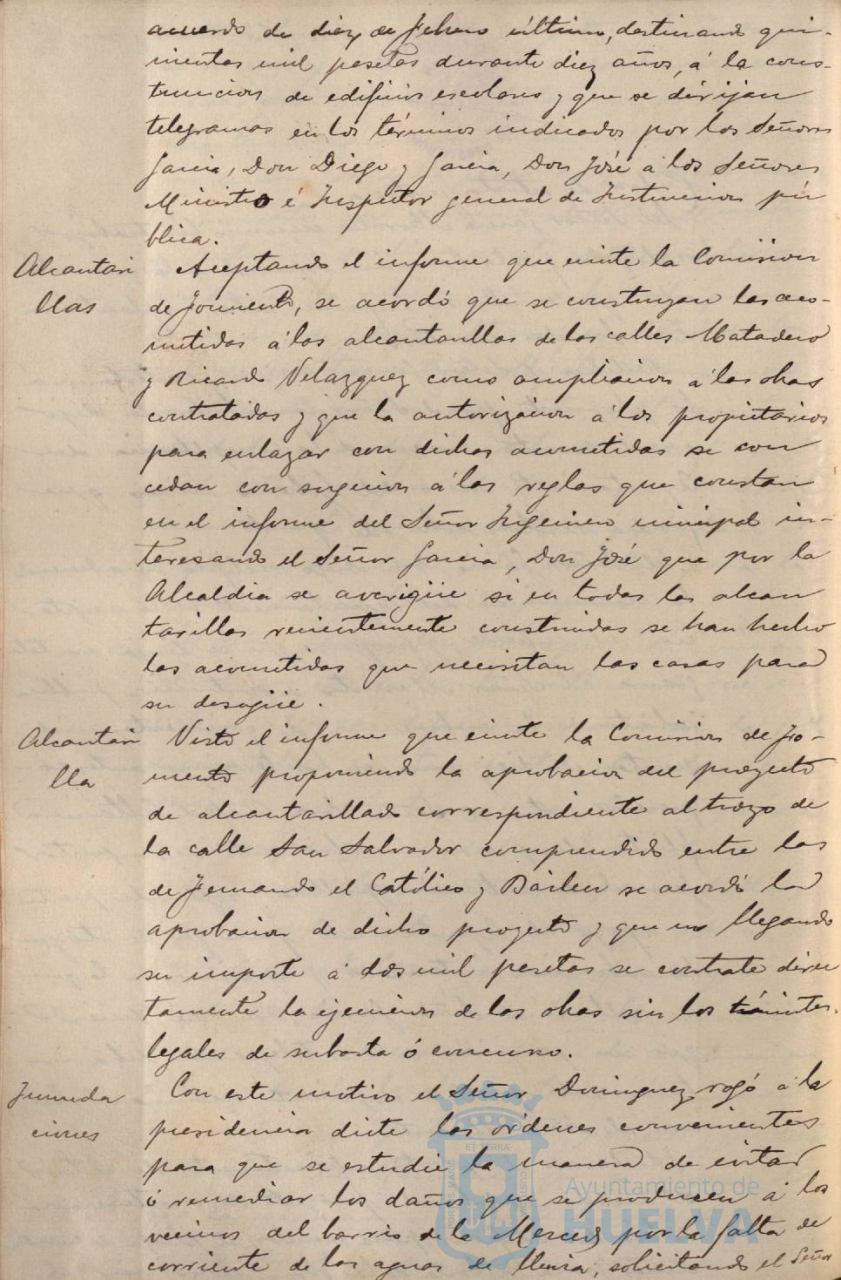 acuerdo de diez de Febrero último, destinando qui-
nientas mil pesetas durante diez años, á la cons-
truccion de edificios escolares y que se dirijan
telegramas en los términos indicados por los Señores
Garcia, Don Diego y Garcia, Don José á los Señores
Ministro é Inspector general de Instruccion pú
blica.
Alcantari
llas
Aceptando el informe que emite la Comision
de Fomento, se acordó que se construyan las aco-
metidas á las alcantarillas de las calles Matadero
y Ricardo Velazquez como ampliacion á las obras
contratadas y que la autorizacion á los propietarios
para enlazar con dichas acometidas se con
cedan con sugecion á las reglas que constan
en el informe del Señor Ingeniero municipal in-
teresando el Señor Garcia, Don José que por la
Alcaldia se averigüe si en todas las alcan
tarillas recientemente construidas se han hecho
las acometidas que necesitan las casas para
su desagüe.
Alcantari
lla
Visto el informe que emite la Comision de Fo-
mento proponiendo la aprobacion del proyecto
de alcantarillado correspondiente al trozo de
la calle San Salvador comprendido entre las
de Fernando el Católico y Bailen se acordó la
aprobacion de dicho proyecto y que no llegando
su importe á dos mil pesetas se contrate direc
tamente la ejecucion de las obras sin los trámites
legales de subasta ó concurso.
Inunda
ciones
Con este motivo el Señor Dominguez rogó á la
presidencia dicte las órdenes convenientes
para que se estudie la manera de evitar
ó remediar los daños que se producen á los
vecinos del barrio de la Merced por la falta de
corriente de las aguas de lluvia, solicitando el Señor
Ayuntamiento de
HUELVA